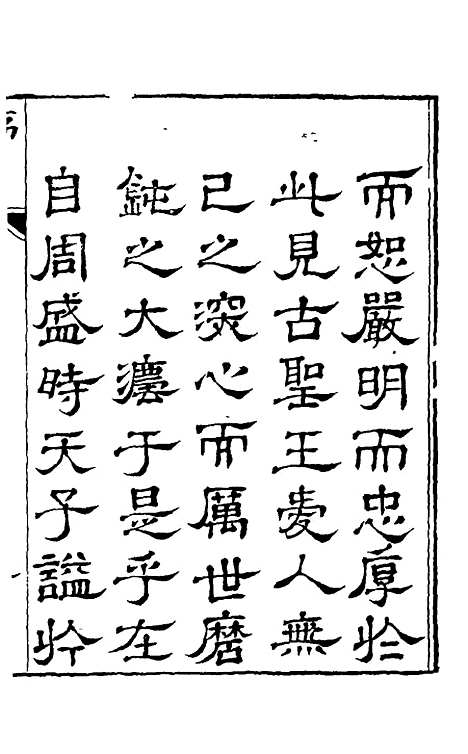 而恕嚴明而忠厚於
此見古聖王愛人無
已之深心而厲世磨
鈍之大灋于是乎在
自周盛時天子謚於